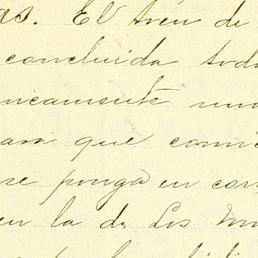 as. El tren de
concluida tod
nicamente un
para que com
se ponga en cor
en la de los